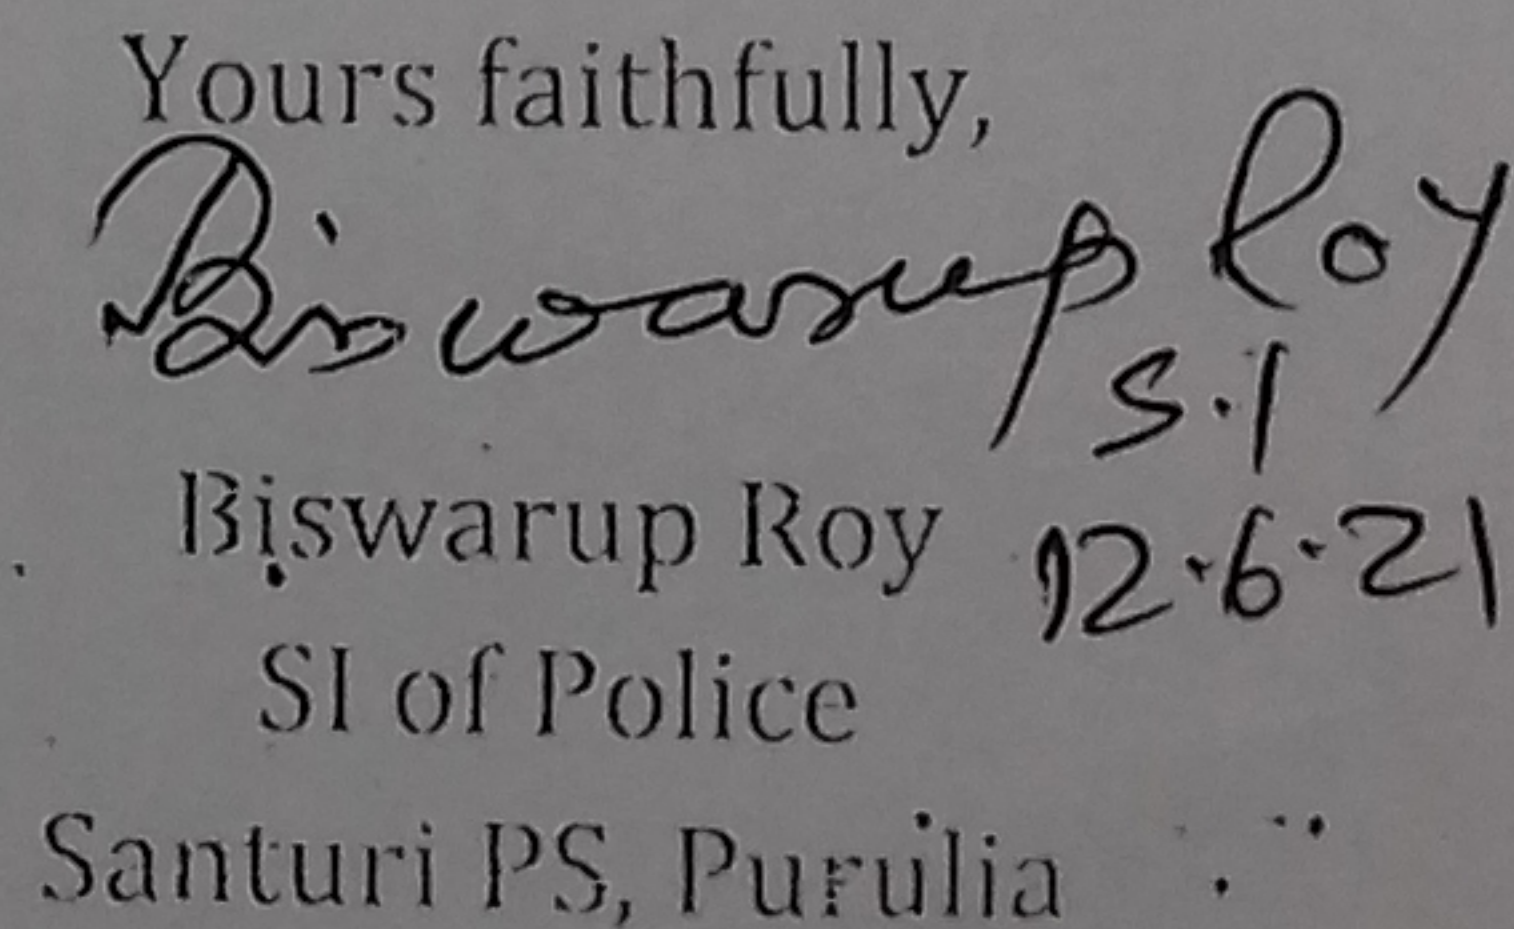 Yours faithfully,
Biswarup Roy
S.I
Biswarup Roy
12.6.21
SI of Police
Santuri PS, Purulia